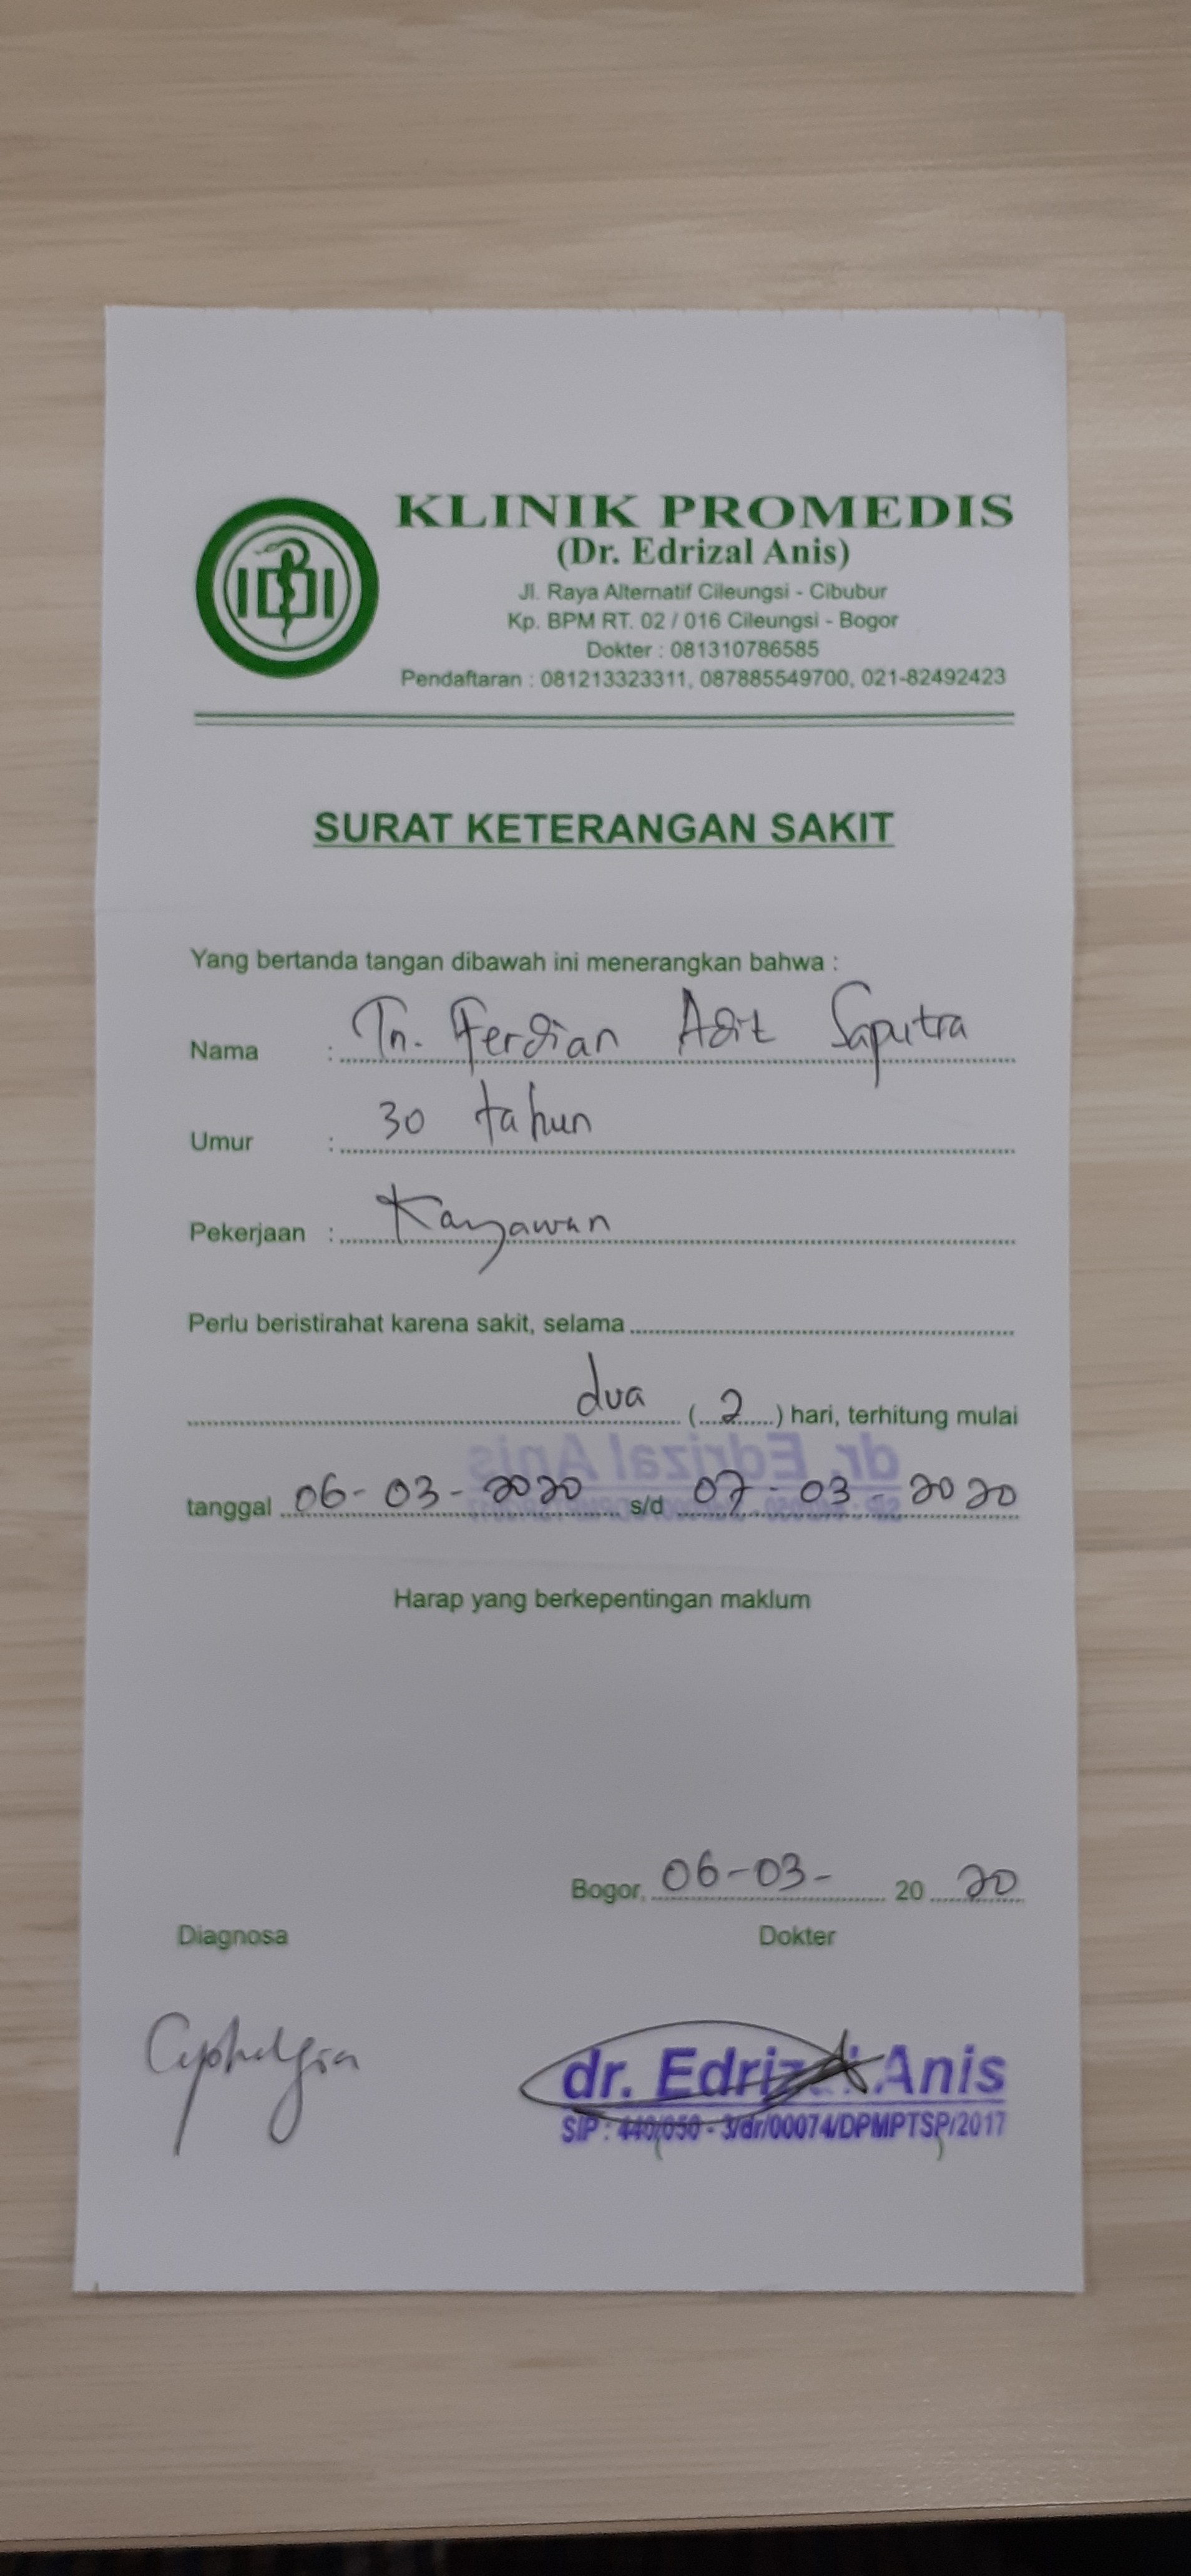 KLINIK PROMEDIS
(Dr. Edrizal Anis)
Jl. Raya Alternatif Cileungsi - Cibubur
Kp. BPM RT. 02 / 016 Cileungsi - Bogor
Dokter : 081310786585
Pendaftaran : 081213323311, 087885549700, 021-82492423
IDI
SURAT KETERANGAN SAKIT
Yang bertanda tangan dibawah ini menerangkan bahwa :
Nama : Tn. Ferdian Adit Saputra
Umur : 30 tahun
Pekerjaan : Karyawan
Perlu beristirahat karena sakit, selama
dua (2) hari, terhitung mulai
dr. Edrizal Anis
tanggal 06-03-2020 s/d 07-03-2020
Harap yang berkepentingan maklum
Bogor, 06-03- 20 20
Diagnosa Dokter
Cephalgia
dr. Edrizal Anis
SIP : 440/050 - 3/dr/00074/DPMPTSP/2017